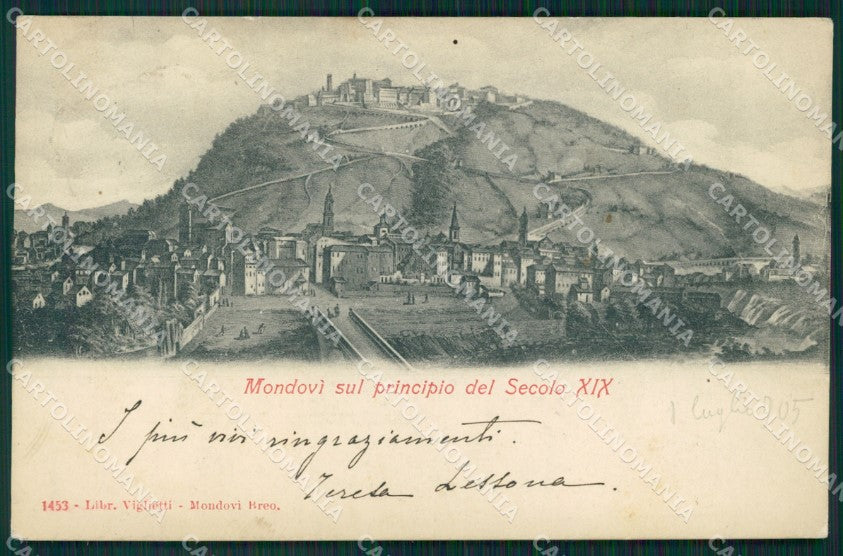 Mondovì sul principio del Secolo XIX
1 luglio 905
I più vivi ringraziamenti.
Teresa Lessona.
1453 - Libr. Viglietti - Mondovì Breo.
CARTOLINOMANIA